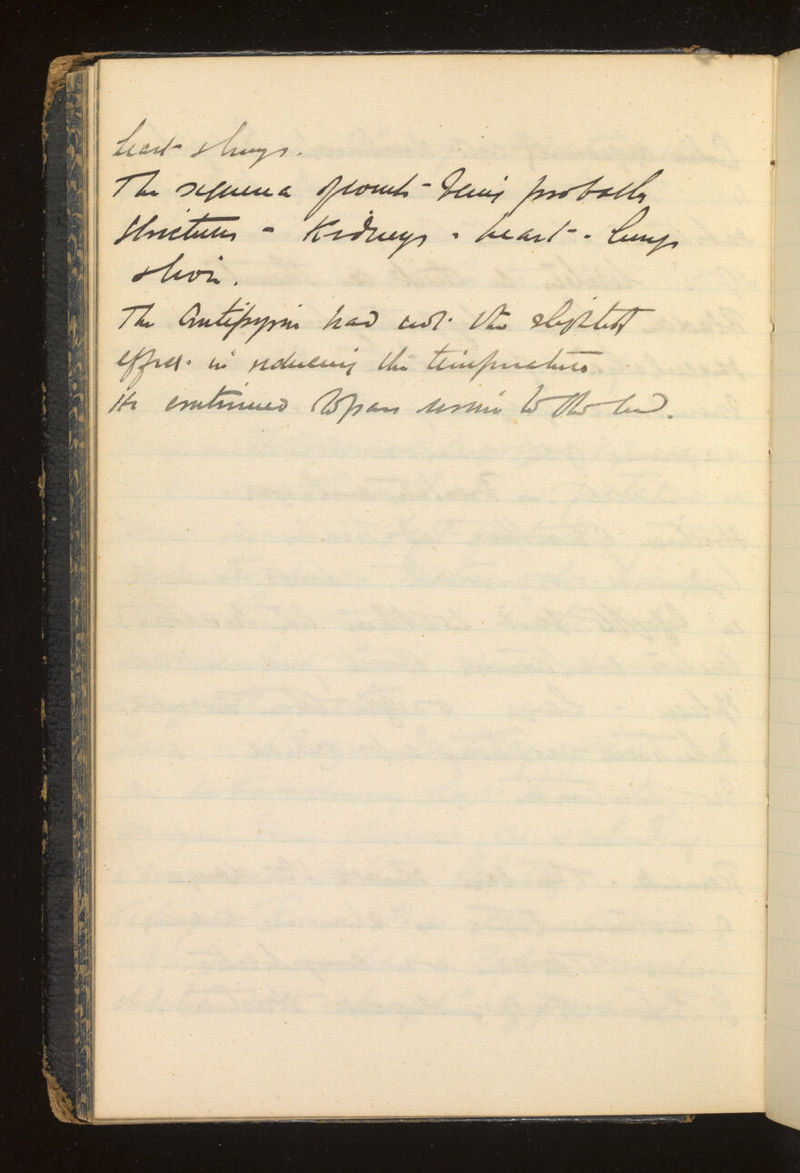 heart & lungs.
The sequence of events being probably
Stricture - Kidneys - heart - lungs
& liver.
The Antipyrin had not the slightest
effect in reducing the temperature
He continued to pass urine to the end.